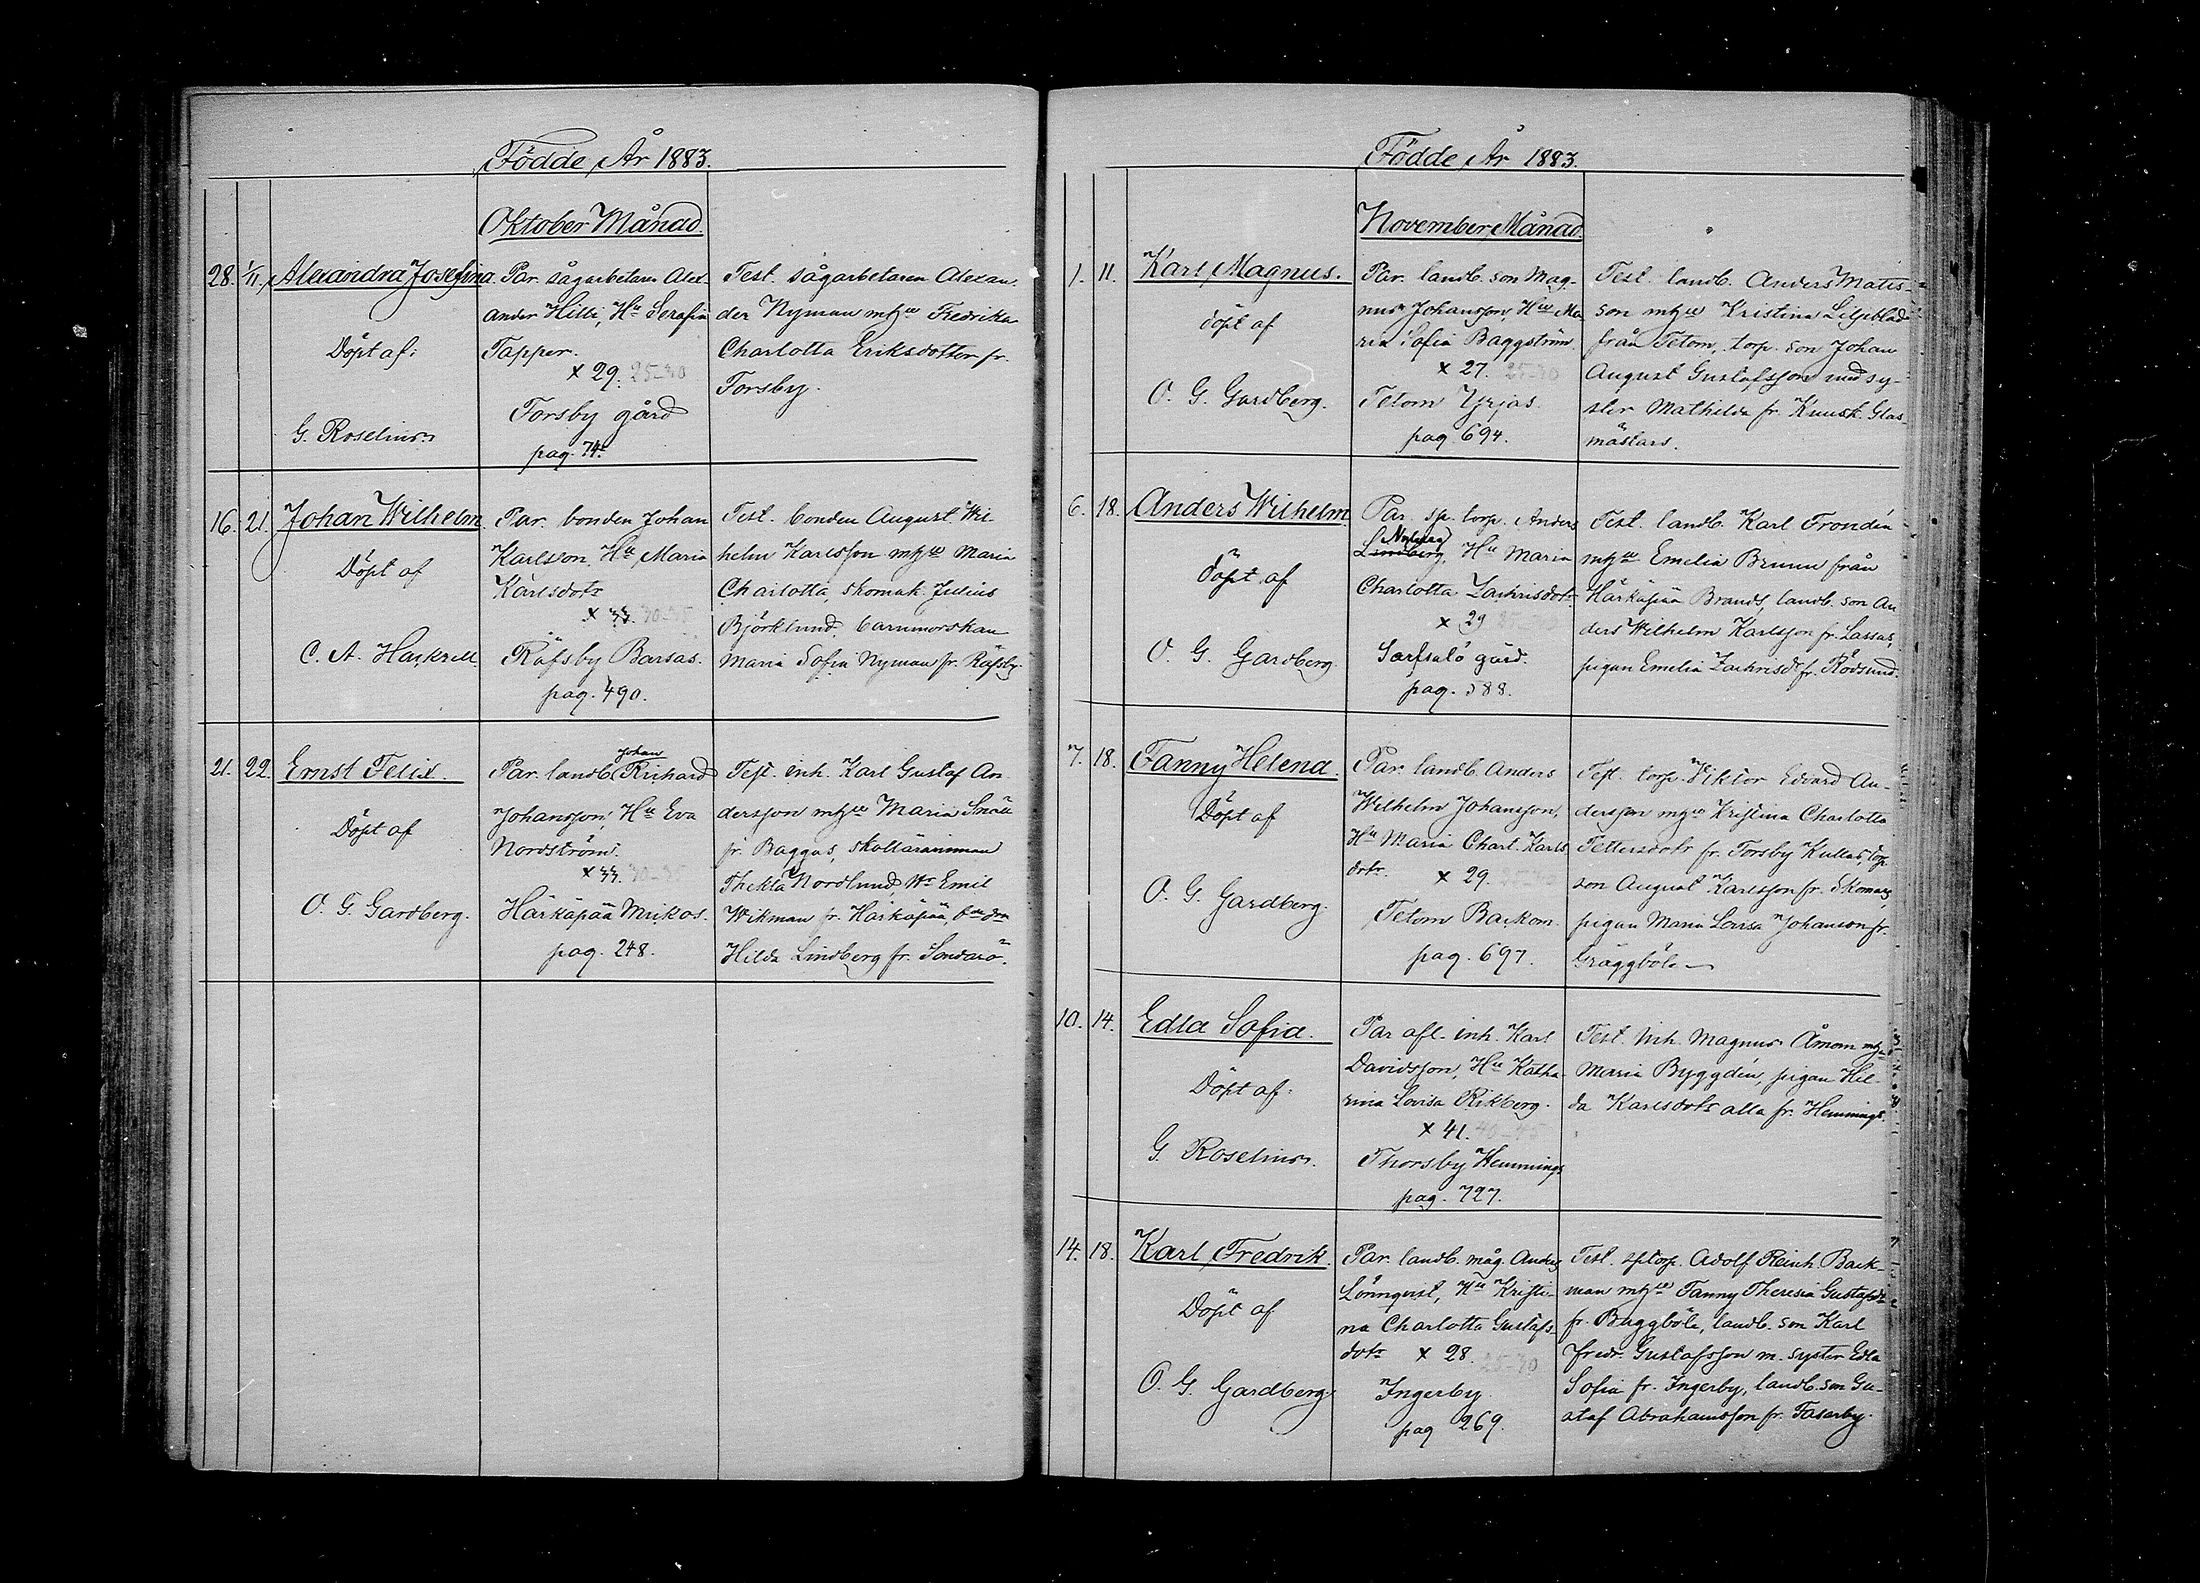 Födde År 1883.
Oktober Månad.
28. 1/11. Alexandra Josefina.
Döpt af:
G. Roselius
Par. sågarbetaren Alex-
ander Hilli, Hu Serafia
Tapper.
x 29. 25-30
Torsby gård
pag. 74.
Test. sågarbetaren Alexan-
der Nyman m hu Fredrika
Charlotta Eriksdotter fr.
Torsby.
16. 21. Johan Wilhelm
Döpt af
C. A. Hackzell.
Par. bonden Johan
Karlsson, Hu Maria
Karlsdotr
x 33. 30-35
Räfsby Barsas.
pag. 490.
Test. bonden August Wil-
helm Karlsson m hu Maria
Charlotta, skomak. Julius
Björklund, barnmorskan
Maria Sofia Nyman fr. Räfsby.
21. 22. Ernst Felix.
Döpt af
O. G. Gardberg.
Johan
Par. landb. Richard
Johansson, Hu Eva
Nordström.
x 33. 30-35
Härkäpää Mickos.
pag. 248.
Test. inh. Karl Gustaf An-
dersson m hu Maria Snäll
fr. Baggas, skollärarinnan
Thekla Nordlund, Hr Emil
Wikman fr. Härkäpää,
Hilda Lindberg fr. Sondarö.
Födde År 1883.
November Månad.
1. 11. Karl Magnus.
döpt af
O. G. Gardberg.
Par. landb. son Mag-
nus Johansson, Hu Ma-
ria Sofia Baggström.
x 27. 25-30
Tetom Yrjas.
pag 694.
Test. landb. Anders Mats-
son m hu Kristina Liljeblad
från Tetom, torp. son Johan
August Gustafsson med sy-
ster Mathilda fr. Kuusk. Glas-
mästars.
6. 18. Anders Wilhelm
döpt af
O. G. Gardberg
Par. sp. torp. Anders
Nyberg
Lindberg, Hu Maria
Charlotta Zachrisdotr
x 29
Sarfsalö gård.
pag. 588.
Test. landb. Karl Frondén
m hu Emelia Brunn från
Härkäpää Brands, landb. son An-
ders Wilhelm Karlsson fr. Lassas,
pigan Emelia Zachrisdr fr. Rödsund.
7. 18. Fanny Helena.
Döpt af
O. G. Gardberg.
Par. landb. Anders
Wilhelm Johansson,
Hu Maria Charl. Karls-
dotr. x 29. 25-30
Tetom Backom.
pag. 697.
Test. torp. Viktor Edvard An-
dersson m hu Kristina Charlotta
Pettersdotr fr. Torsby Kullas, torp.
son August Karlsson fr. Skomars,
pigan Maria Lovisa Johansson fr.
Gräggböle
10. 14. Edla Sofia.
Döpt af:
G. Roselius.
Par afl. inh. Karl
Davidsson, Hu Katha-
rina Lovisa Rikberg.
x 41. 40-45
Thorsby Hemmings
pag. 727.
Test. Inh. Magnus Åmom m hu
Maria Byggdén, pigan Hil-
da Karlsdotr alla fr. Hemmings.
14. 18. Karl Fredrik.
Döpt af
O. G. Gardberg
Par. landb. måg. Anders
Lönnqvist, Hu Kristi-
na Charlotta Gustafs-
dotr x 28. 25-30
Ingerby.
pag 269.
Test. sptorp. Adolf Reinh. Back-
man m hu Fanny Theresia Gustafsdr
fr. Buggböle, landb. son Karl
Fredr. Gustafsson m. syster Edla
Sofia fr. Ingerby, landb. son Gu-
staf Abrahamsson fr. Fasarby.